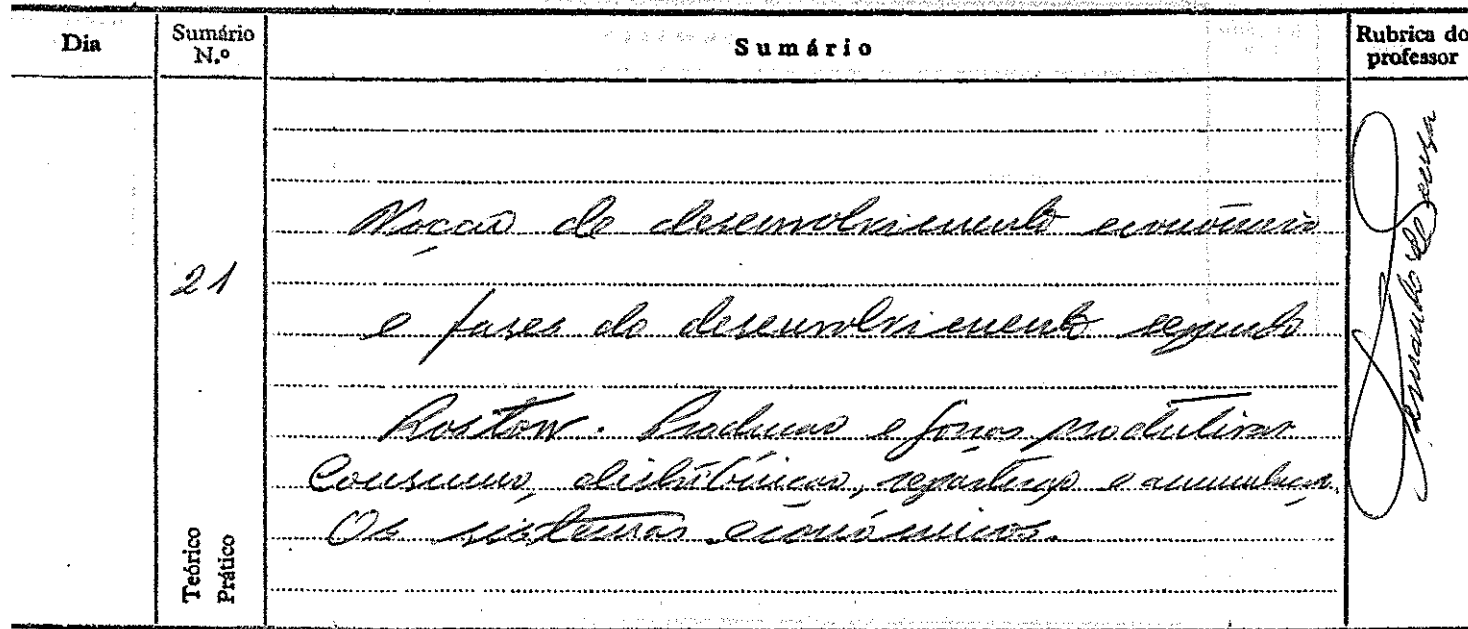 Dia
Sumário N.º
Sumário
Rubrica do professor
21
Noção de desenvolvimento económico
e fases do desenvolvimento segundo
Rostow. Produção e forças produtivas
Consumo, distribuição, repartição e acumulação.
Os sistemas económicos.
Teórico
Prático
Fernando de Sousa